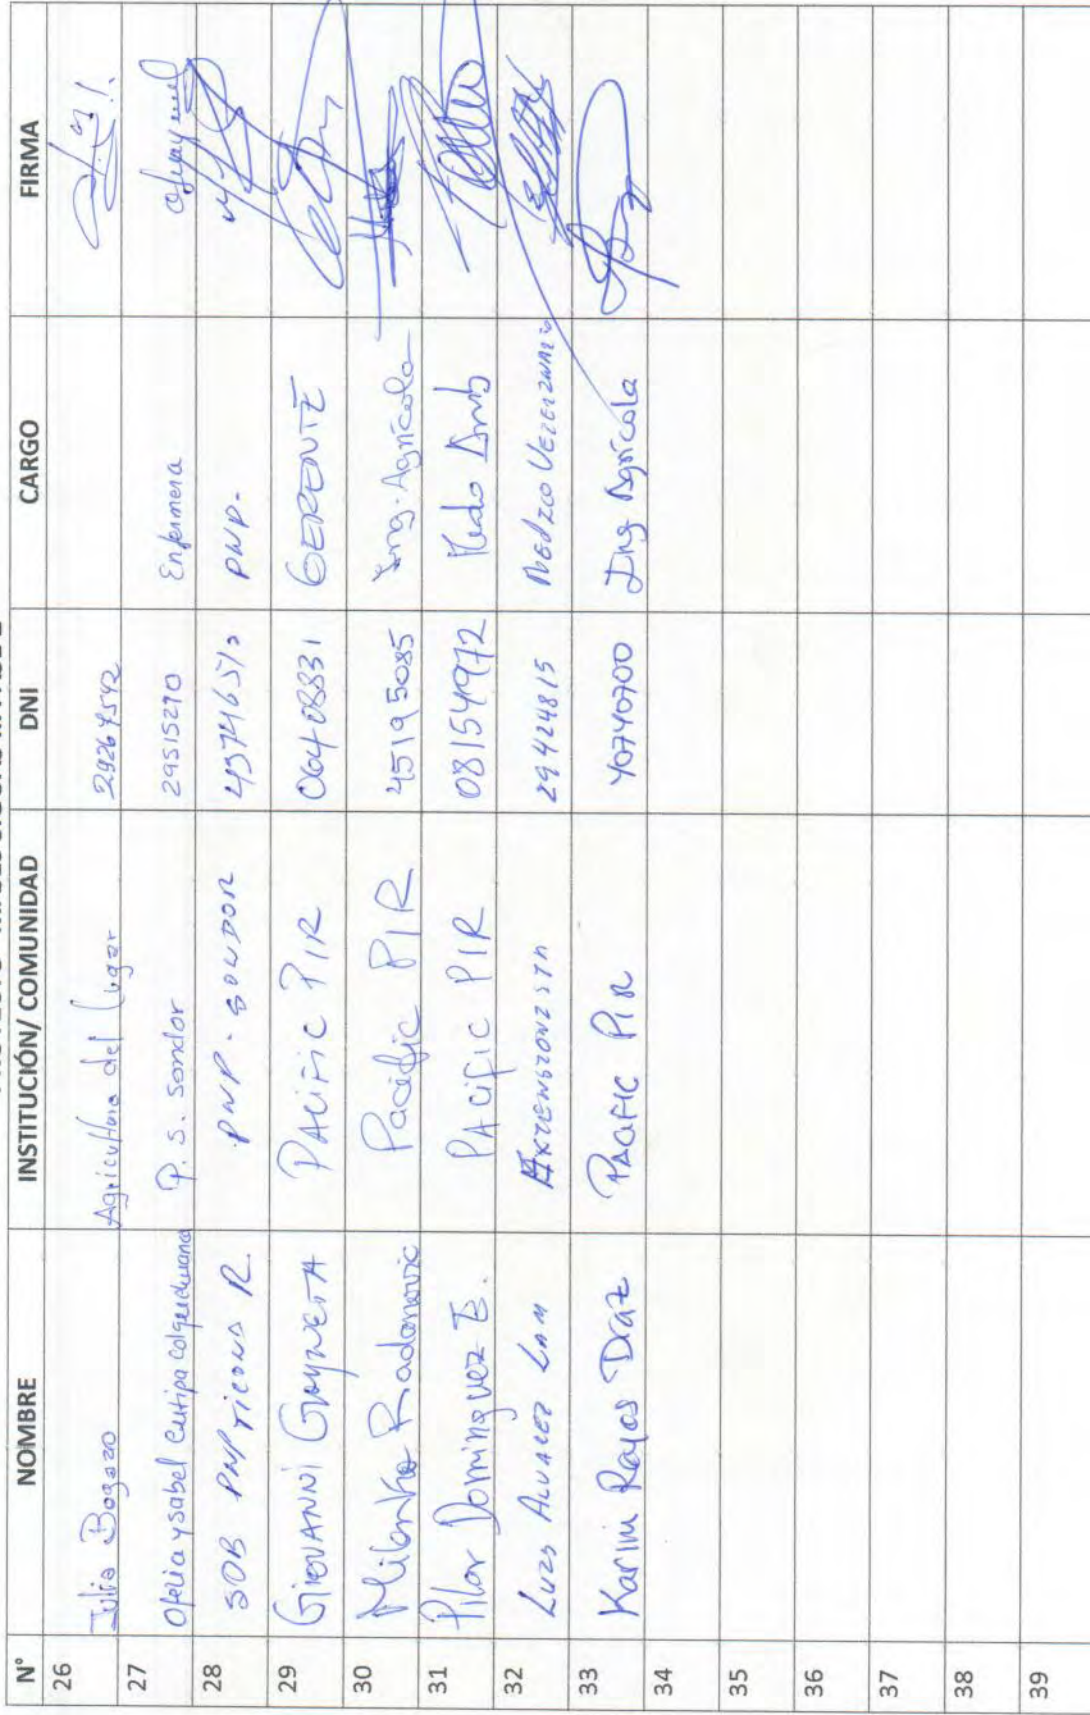 N° NOMBRE INSTITUCIÓN/ COMUNIDAD DNI CARGO FIRMA
26 Julia Bogazo Agricultora del lugar 29264542
27 Ofelia ysabel Cutipa Colquehuanca P. S. Sondor 29515270 Enfermera
28 SOB PNP TICONA R. PNP - SONDOR PNP-
29 GIOVANNI PACIFIC PIR 06408831 GERENTE
30 Milenko Radanovic Pacific PIR 45195085 Ing. Agrícola
31 Pilar Dominguez E. PACIFIC PIR 08154972
32 Luzs ALVAREZ LAM EXTENSIONISTA 29424815 MEDICO VETERINARIO
33 Karim Rojas Diaz PACIFIC PIR 40740700 Ing Agrícola
34
35
36
37
38
39